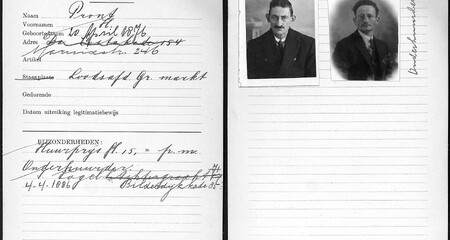 Naam Pront
Voornamen H.
Geboortedatum 20 April 1876
Adres 154
Marnixstr. 246
Artikel
Staanplaats Loodsafd. Gr. markt
Gedurende
Datum uitreiking legitimatiebewijs
BIJZONDERHEDEN:
Huurprijs fl. 15,= p.m.
Onderhuurder:
Vogel
4-4-1886 Bilderdijkkade
Onderhuurder